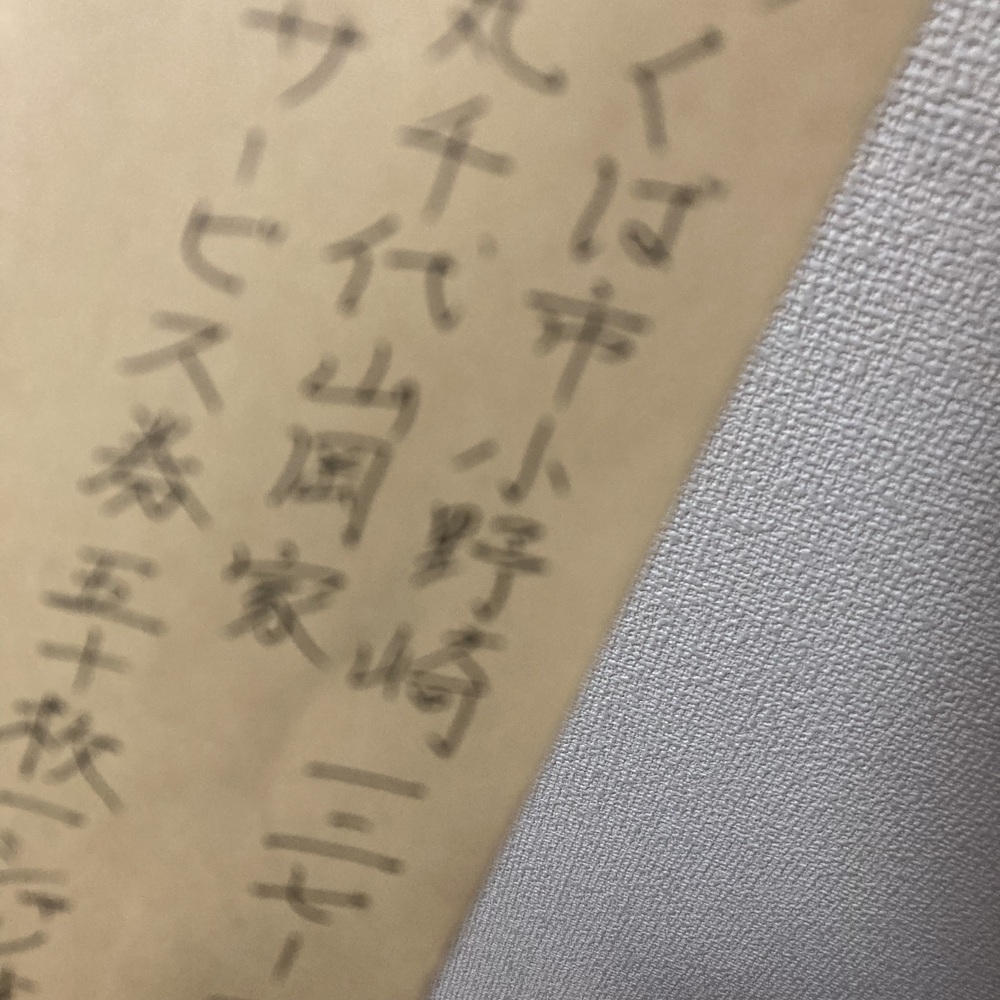 くば市小野崎一二七ー
丸千代山岡家
サービス券五十枚